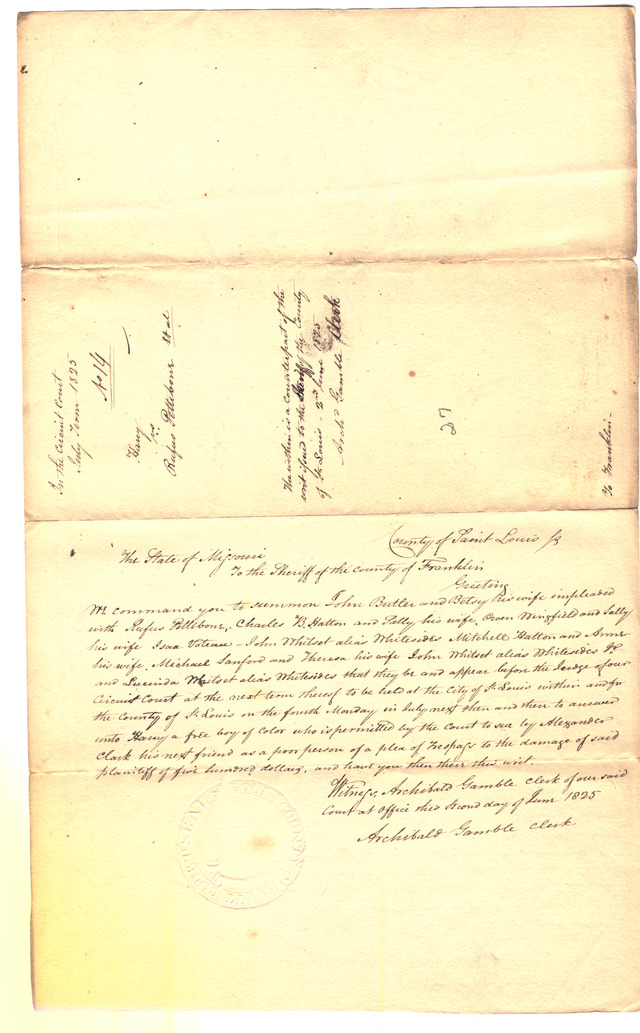 In the Circuit Court
July Term 1825
No 14
Harry
vs.
Rufus Pettibone et al
The within is a counterpart of the
writ issued to the Sheriff of the County
of St Louis - 2d June 1825
Archd Gamble Clerk
27
To Franklin -
County of Saint Louis ss
The State of Missouri
To the Sheriff of the county of Franklin
Greeting
We command you to summon John Butler and Betsey his wife impleaded
with Rufus Pettibone, Charles B. Hatton and Sally his wife, Owen Wingfield and Sally
his wife Isaa Voteau - John Whitset alias Whitesides Mitchell Hatton and Anne
his wife, Michael Sanford and Theresa his wife John Whitset alias Whitesides Jr
and Lucinda Whitset alias Whitesides that they be and appear before the Judge of our
Circuit Court at the next term thereof to be held at the City of St Louis within and for
the county of St Louis on the fourth Monday in July next then and there to answer
unto Harry a free boy of color who is permitted by the Court to sue by Alexander
Clark his next friend as a poor person of a plea of Trespass to the damage of said
plaintiff of five hundred dollars, and have you then there this writ.
Witness, Archibald Gamble Clerk of our said
Court at Office this Second day of June 1825
Archibald Gamble Clerk